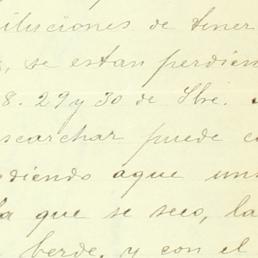 iluciones de tener
, se estan perdien
8. 29 y 30 de Sbre.
escarchar puede
diendo aque un
la que se seco, la
berde, y con el